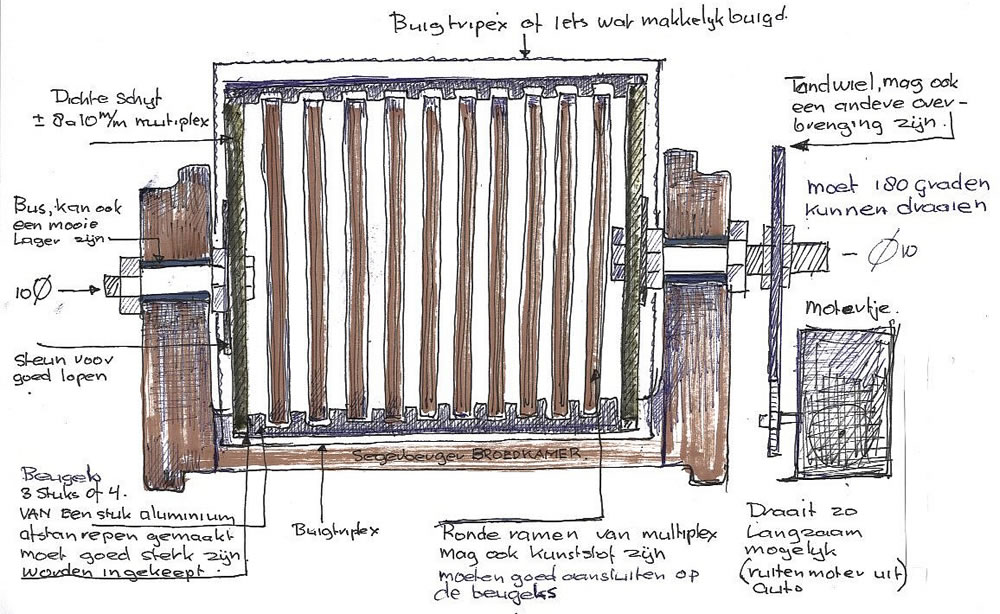 Buigtripex of iets war makkelyk buigd.
Dichte schyf
± 8 a 10 m/m multiplex
Tandwiel, mag ook
een andere over-
brenging zijn.
moet 180 graden
kunnen draaien
Bus, kan ook
een mooie
Lager zijn
10 Ø
Ø 10
Motortje.
steun voor
goed lopen
Segerbeuger BROEDKAMER.
Beugels
3 stuks of 4.
VAN een stuk aluminium
afstan repen gemaakt
moet goed sterk zijn
worden ingekeept.
Buigtriplex
Ronde ramen van multiplex
mag ook kunststof zijn
moeten goed aansluiten op
de beugels
Draait zo
Langzaam
mogelijk
(ruitenmoter uit)
auto